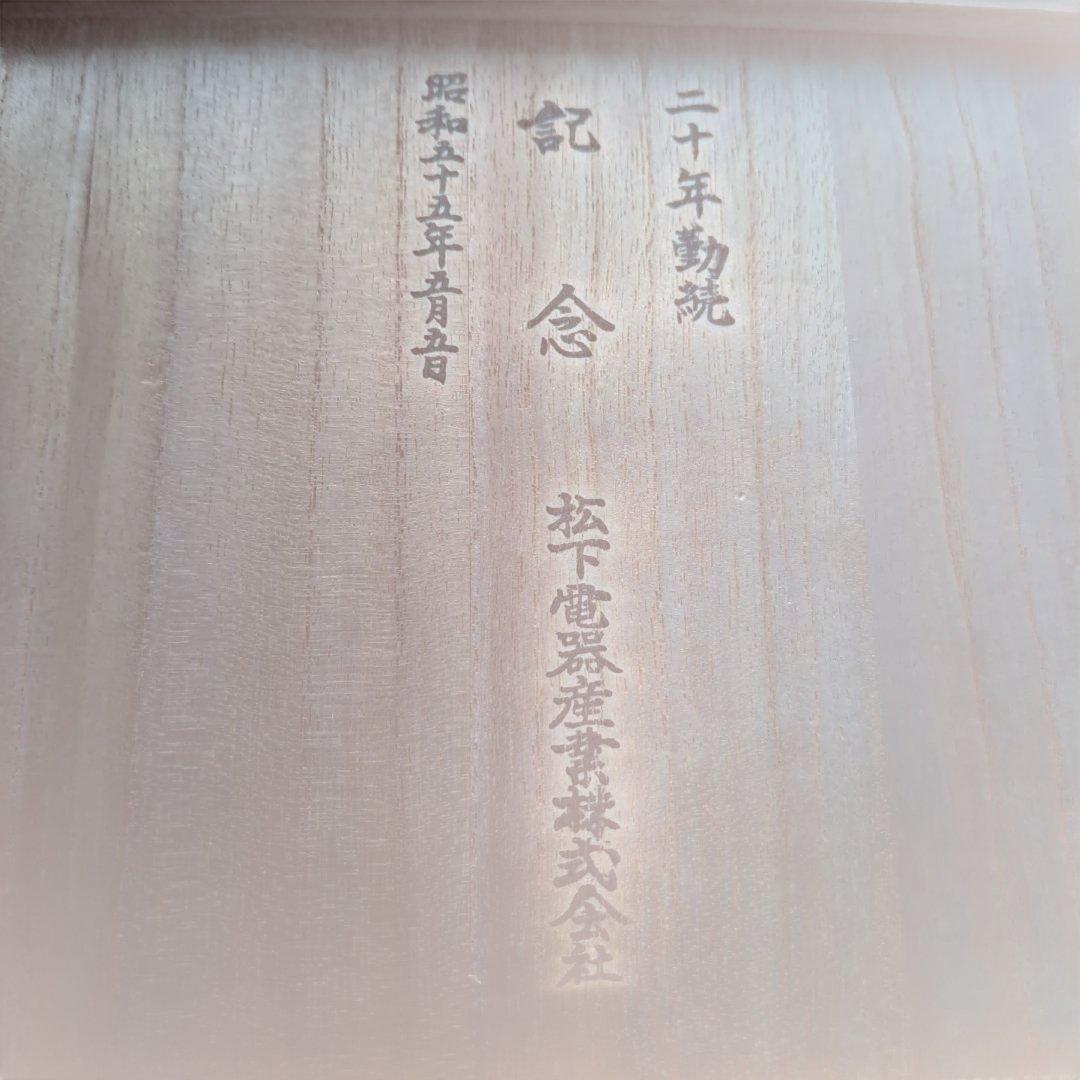 二十年勤続
記念
昭和五十五年五月五日
松下電器産業株式会社